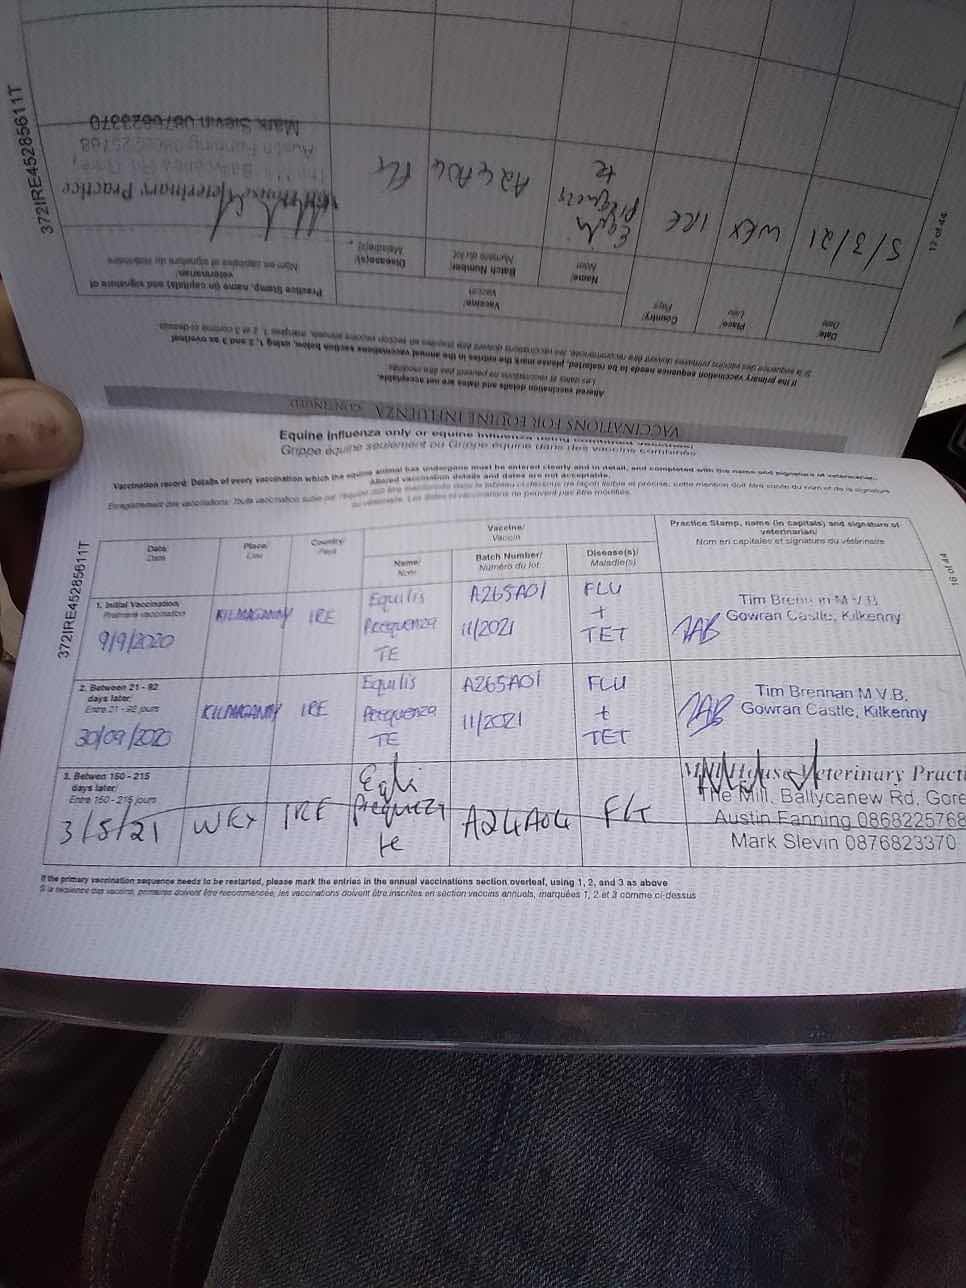 372IRE45285611T
17 of 44
VACCINATIONS FOR EQUINE INFLUENZA CONTINUED
Altered vaccination details and dates are not acceptable.
Les dates et vaccinations ne peuvent pas être modifiés.
If the primary vaccination sequence needs to be restarted, please mark the entries in the annual vaccinations section below, using 1, 2 and 3 as overleaf
Date/
Date
Place/
Lieu
Country/
Pays
Vaccine/
Vaccin
Name/
Nom
Batch Number/
Numéro du lot
Disease(s)/
Maladie(s)
Practice Stamp, name (in capitals) and signature of
veterinarian/
Nom en capitales et signature du vétérinaire
5/3/21 WEX IRE Equi Prequenz te A24A04 F&T
Veterinary Practice
Austin Fanning
Mark Slevin 0876823370
Equine influenza only or equine influenza using combined vaccines/
Grippe équine seulement ou Grippe équine dans des vaccins combinés
Vaccination record: Details of every vaccination which the equine animal has undergone must be entered clearly and in detail, and completed with the name and signature of veterinarian.
Altered vaccination details and dates are not acceptable.
372IRE45285611T
Date/
Date
Place/
Lieu
Country/
Pays
Vaccine/
Vaccin
Name/
Nom
Batch Number/
Numéro du lot
Disease(s)/
Maladie(s)
Practice Stamp, name (in capitals) and signature of
veterinarian/
Nom en capitales et signature du vétérinaire
1. Initial Vaccination/
Première vaccination
9/9/2020
KILMAGANNY
IRE
Equilis
Prequenza
TE
A265A01
11/2021
FLU
+
TET
Tim Brennan M.V.B.
Gowran Castle, Kilkenny
2. Between 21 - 92
days later/
Entre 21 - 92 jours
30/09/2020
KILMAGANNY
IRE
Equilis
Prequenza
TE
A265A01
11/2021
FLU
+
TET
Tim Brennan M.V.B.
Gowran Castle, Kilkenny
3. Betwen 150 - 215
days later/
Entre 150 - 215 jours
3/5/21
WEX
IRE
Equi
Prequenz
te
A24A04
F&T
House Veterinary Practi
The Mill, Ballycanew Rd, Gore
Austin Fanning 0868225768
Mark Slevin 0876823370
If the primary vaccination sequence needs to be restarted, please mark the entries in the annual vaccinations section overleaf, using 1, 2, and 3 as above
Si la séquence des vaccins, primaires doivent être recommencée, les vaccinations doivent être inscrites en section vaccins annuels, marquées 1, 2 et 3 comme ci-dessus